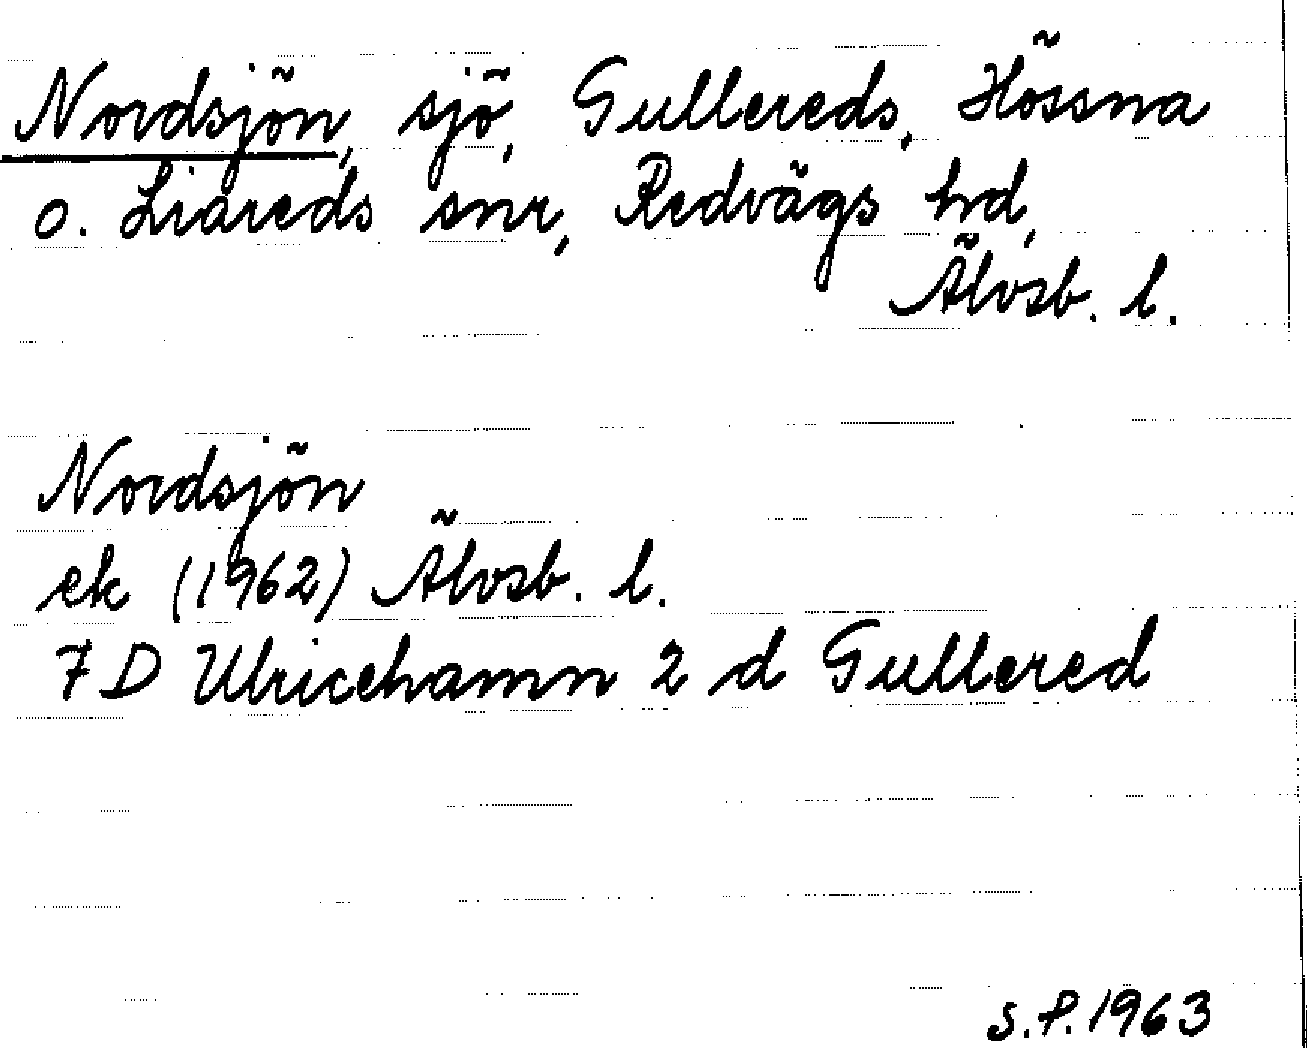 Nordsjön, sjö, Gullereds, Hössna
o. Liareds snr, Redvägs hd,
Älvsb. l.
Nordsjön
ek (1962) Älvsb. l.
7 D Ulricehamn 2 d Gullered
S.P. 1963